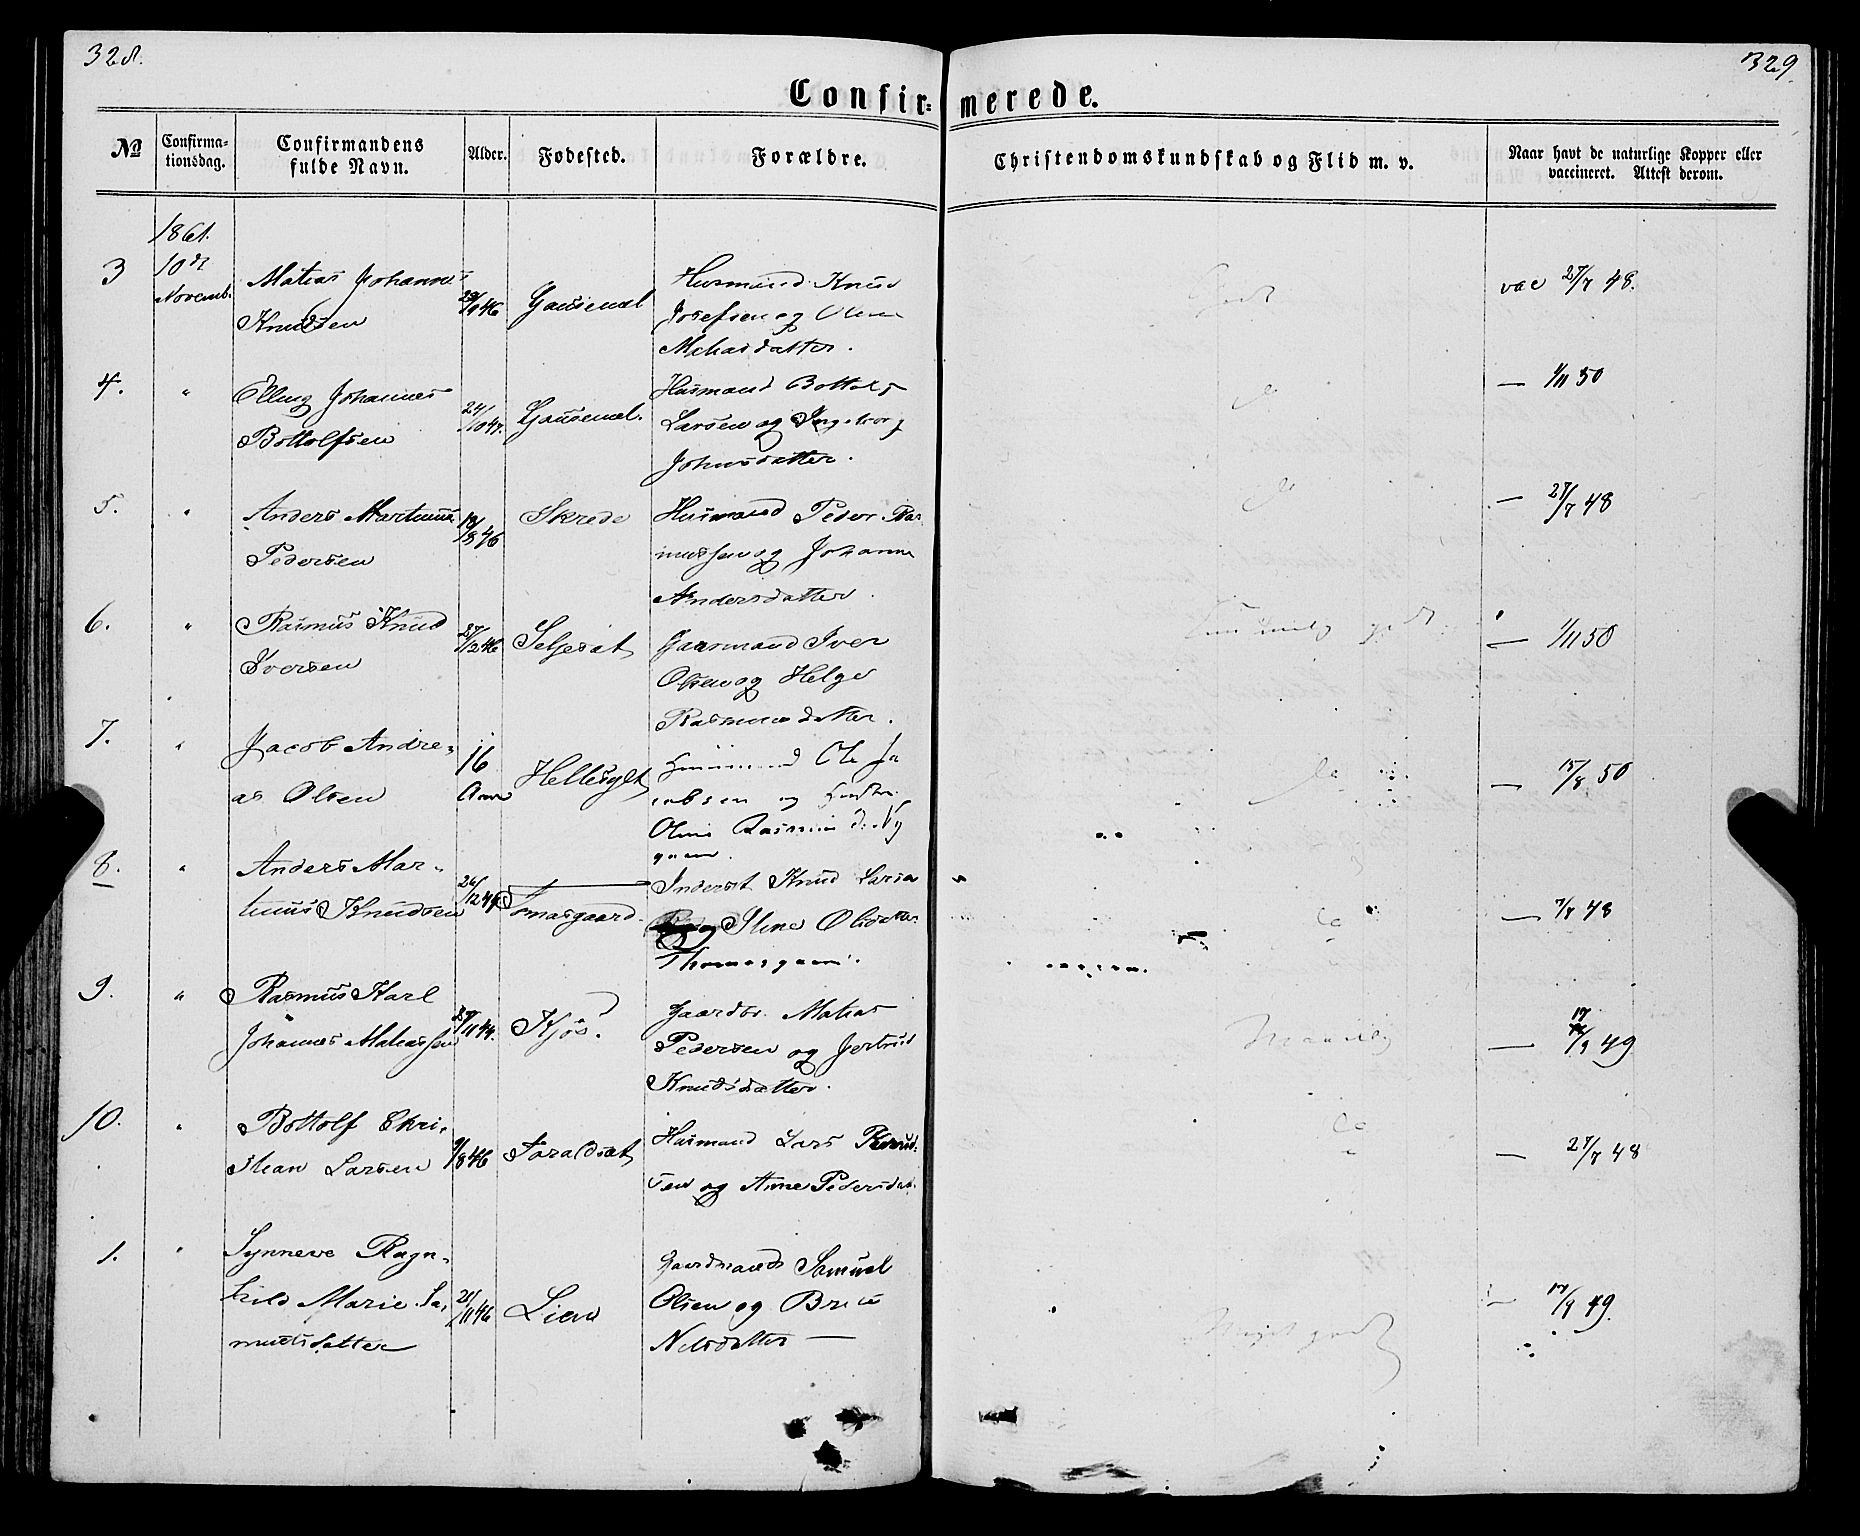 328.
329.
Confir- merede.
No
Confirma-
tionsdag.
Confirmandens
fulde Navn.
Alder.
Fødested.
Forældre.
Christendomskundskab og Flid m. v.
Naar havt de naturlige Kopper eller
vaccineret. Attest derom.
1861.
10de
Novemb.
3
Matias Johannes
Knudsen
Gausemel
Husmand Knud
Josefsen og Oline
Matiasdatter.
Godt
vac 27/7 48.
4.
"
Elling Johannes
Bottolfsen
24/10 47.
Gausemel.
Husmand Bottolf
Larsen og Ingeborg
Johnsdatter.
do
— 1/11 50
5.
"
Anders Martinus
Pedersen
18/8 46
Skrede
Husmand Peder Ras
mussen og Johanne
Andersdatter.
do
— 27/7 48
6.
"
Rasmus Knud
Iversen
27/12 46
Seljesæt
Gaarmand Iver
Olsen og Helge
Rasmusdatter.
godt
— 1/11 50
7.
"
Jacob Andre-
as Olsen
16
Aar
Hellesylt
Ole Ja
cobsen og Hustru
Oline Rasmus d. Ny
gaard.
do
— 15/8 50
8.
"
Anders Mar-
tinus Knudsen
Tomasgaard.
Inderst Knud Larsen
og Stine Olsdatter
Thomasgaard.
do
— 7/7 48
9.
"
Rasmus Karl
Johannes Matiassen
Kjøs.
Gaardbr. Matias
Pedersen og Jertrud
Knudsdatter.
Maadelig
— 17/9 49
10.
"
Bottolf Chri-
stian Larsen
9/8 46
Taraldsæt
Husmand Lars Knud-
sen og Anne Pedersdat.
do
— 27/7 48
1.
"
Synneve Ragn-
hild Marie Sa-
muelsdatter
21/11 46
Lien
Gaardmand Samuel
Olsen og Brite
Nilsdatter —
Meget godt
— 17/9 49.